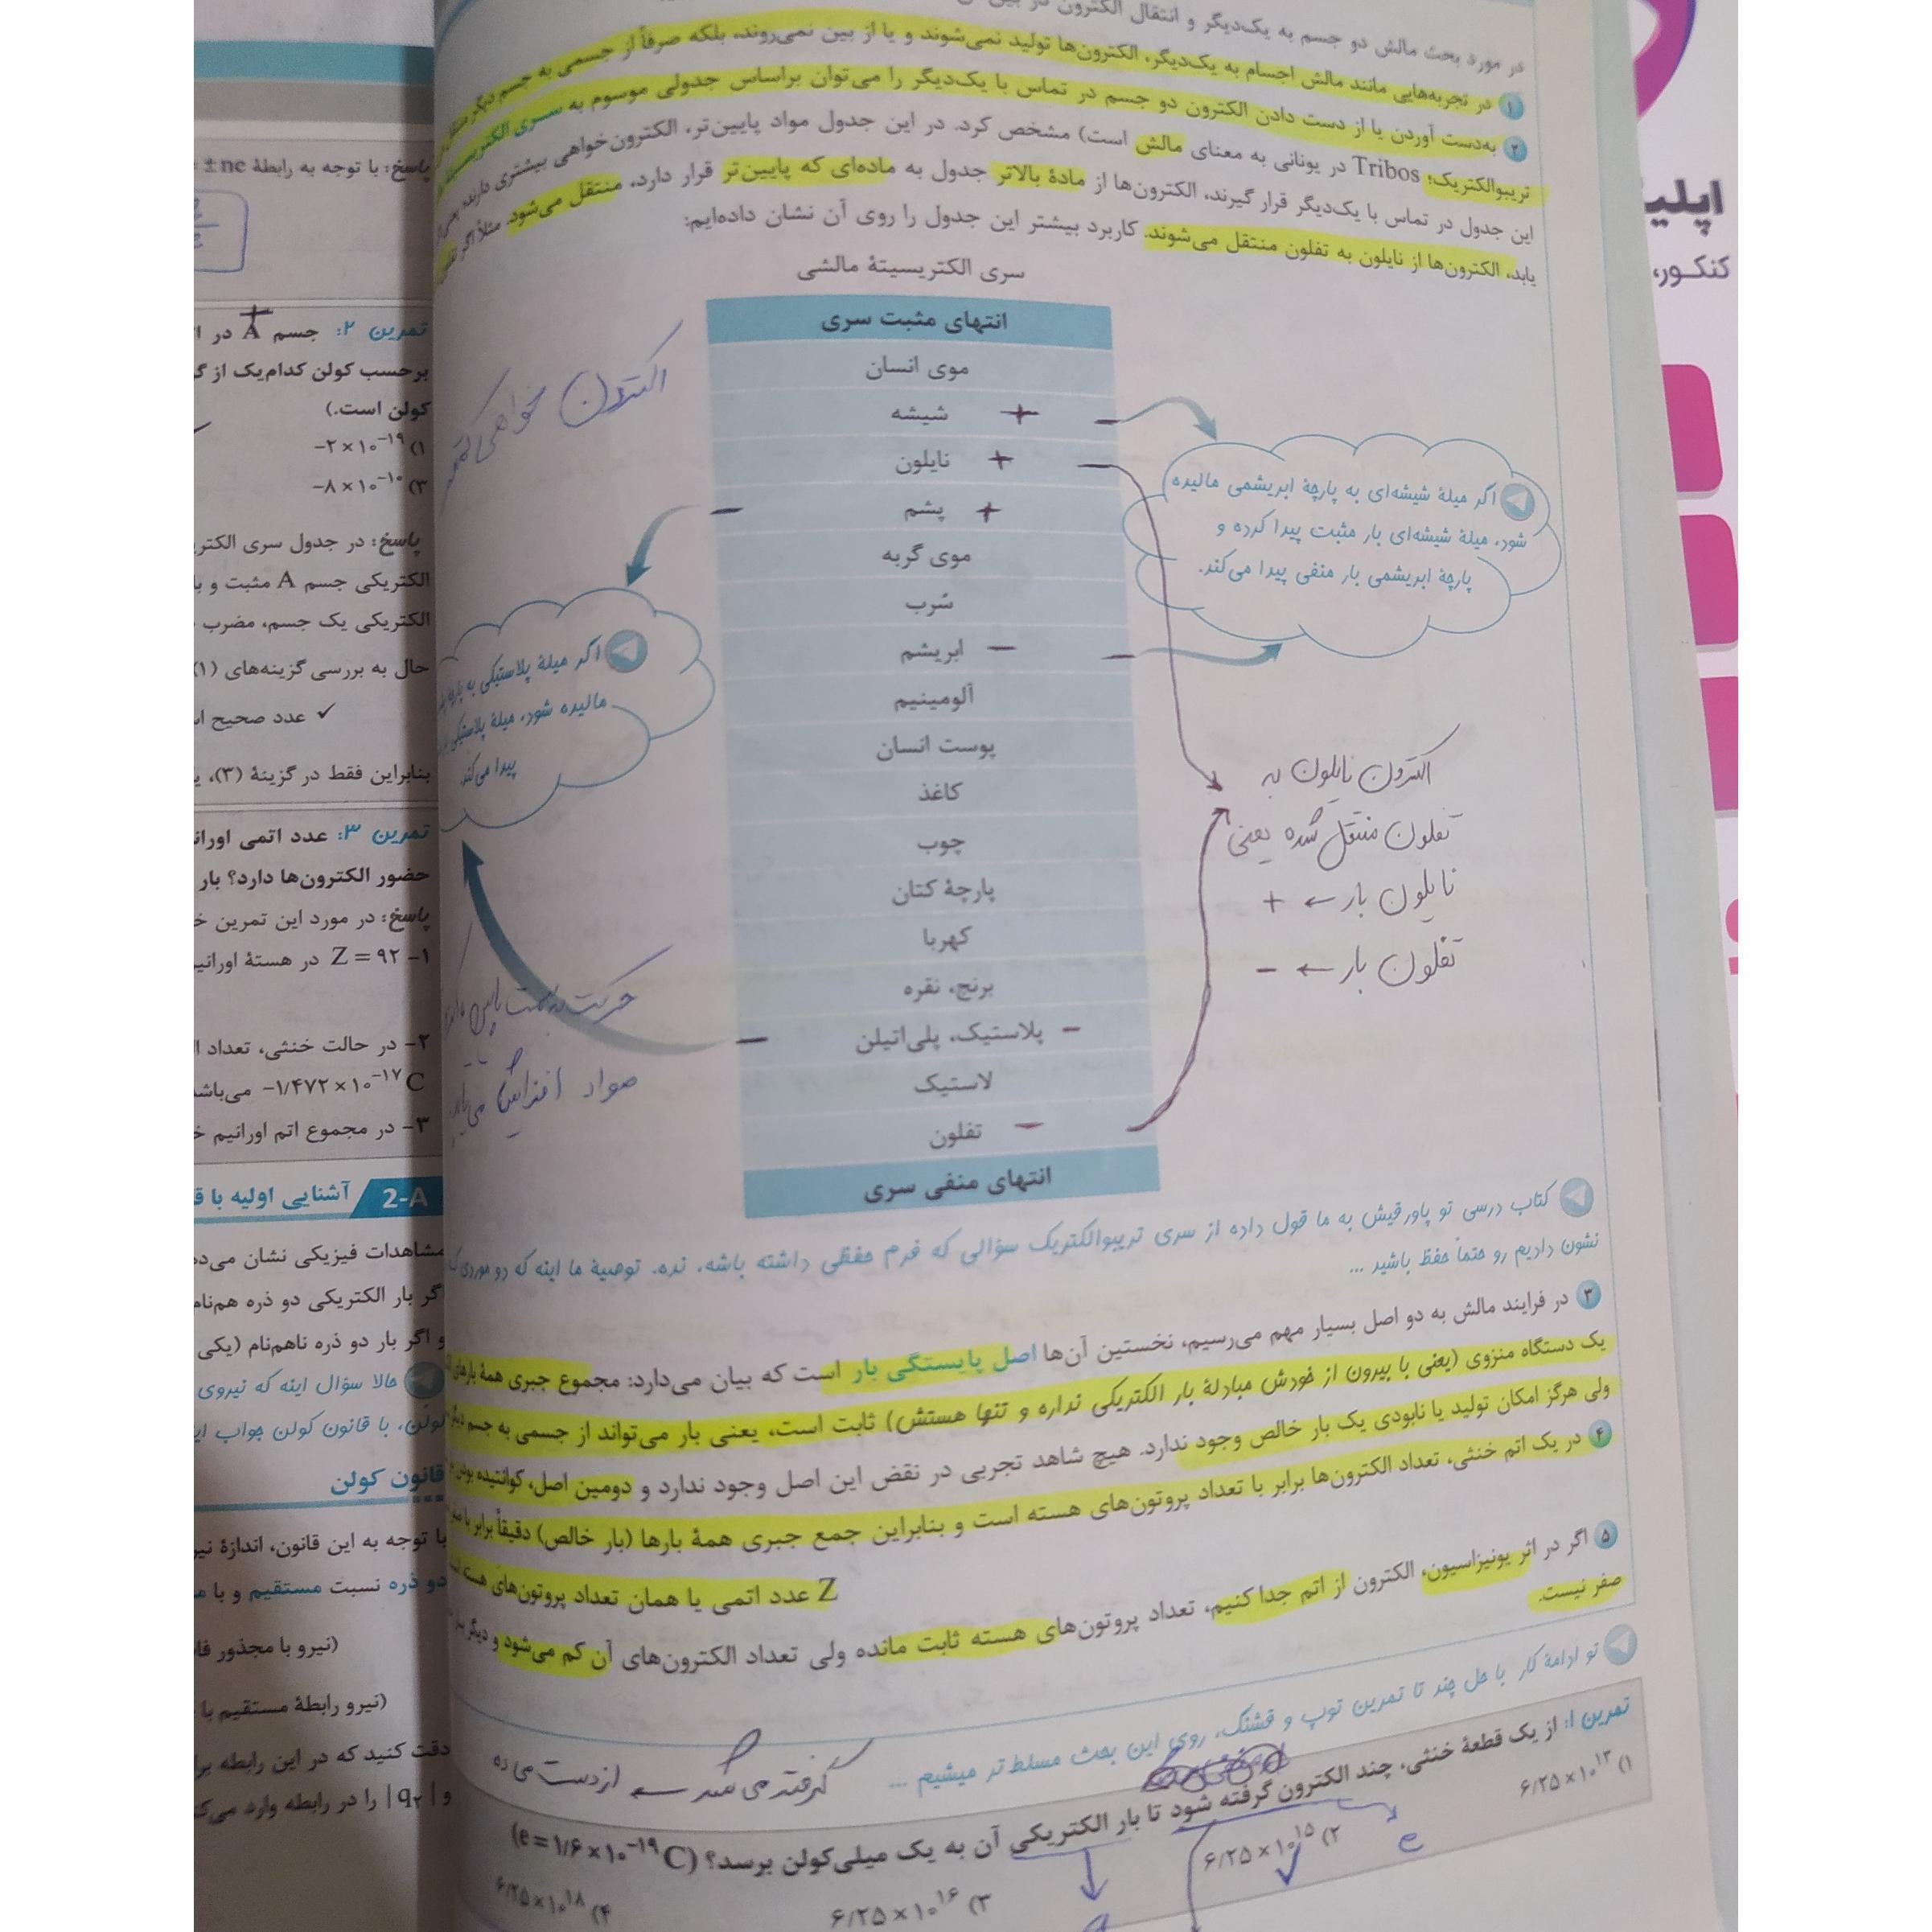 در مورد بحث مالش دو جسم به یک‌دیگر و انتقال الکترون در بین
۱ در تجربه‌هایی مانند مالش اجسام به یک‌دیگر، الکترون‌ها تولید نمی‌شوند و یا از بین نمی‌روند، بلکه صرفاً از جسمی به جسم دیگر
۲ به‌دست آوردن یا از دست دادن الکترون دو جسم در تماس با یک‌دیگر را می‌توان براساس جدولی موسوم به سری الکتریسیتهٔ
تریبوالکتریک؛ Tribos در یونانی به معنای مالش است) مشخص کرد. در این جدول مواد پایین‌تر، الکترون‌خواهی بیشتری دارند؛ یعنی
این جدول در تماس با یک‌دیگر قرار گیرند، الکترون‌ها از مادهٔ بالاتر جدول به ماده‌ای که پایین‌تر قرار دارد، منتقل می‌شود. مثلاً اگر
یابد، الکترون‌ها از نایلون به تفلون منتقل می‌شوند. کاربرد بیشتر این جدول را روی آن نشان داده‌ایم:
سری الکتریسیتهٔ مالشی
انتهای مثبت سری
موی انسان
شیشه + −
نایلون + −
− پشم +
موی گربه
سُرب
ابریشم − −
آلومینیم
پوست انسان
کاغذ
چوب
پارچهٔ کتان
کهربا
برنج، نقره
− پلاستیک، پلی‌اتیلن −
لاستیک
تفلون −
انتهای منفی سری
اگر میلهٔ شیشه‌ای به پارچهٔ ابریشمی مالیده
شود، میلهٔ شیشه‌ای بار مثبت پیدا کرده و
پارچهٔ ابریشمی بار منفی پیدا می‌کند.
اگر میلهٔ پلاستیکی به پارچهٔ
مالیده شود، میلهٔ پلاستیکی
پیدا می‌کند.
الکترون خواهی
حرکت به سمت پایین
مواد افزایش می‌یابد
الکترون نایلون به
تفلون منتقل شده یعنی
نایلون بار ← +
تفلون بار ← −
کتاب درسی تو پاورقیش به ما قول داده از سری تریبوالکتریک سؤالی که فرم حفظی داشته باشه، نده. توصیهٔ ما اینه که دو موردی که
نشون دادیم رو حتماً حفظ باشید ...
۳ در فرایند مالش به دو اصل بسیار مهم می‌رسیم، نخستین آن‌ها اصل پایستگی بار است که بیان می‌دارد: مجموع جبری همهٔ بارهای
یک دستگاه منزوی (یعنی با بیرون از خودش مبادلهٔ بار الکتریکی نداره و تنها هستش) ثابت است، یعنی بار می‌تواند از جسمی به جسم دیگر
ولی هرگز امکان تولید یا نابودی یک بار خالص وجود ندارد. هیچ شاهد تجربی در نقض این اصل وجود ندارد و دومین اصل، کوانتیده بودن
۴ در یک اتم خنثی، تعداد الکترون‌ها برابر با تعداد پروتون‌های هسته است و بنابراین جمع جبری همهٔ بارها (بار خالص) دقیقاً برابر با
Z عدد اتمی یا همان تعداد پروتون‌های هسته
۵ اگر در اثر یونیزاسیون، الکترون از اتم جدا کنیم، تعداد پروتون‌های هسته ثابت مانده ولی تعداد الکترون‌های آن کم می‌شود و دیگر
صفر نیست.
تو ادامهٔ کار با حل چند تا تمرین توپ و قشنگ، روی این بحث مسلط‌تر میشیم ...
گرفته می شد ← از دست می ده
تمرین ۱: از یک قطعهٔ خنثی، چند الکترون گرفته شود تا بار الکتریکی آن به یک میلی‌کولن برسد؟ (e = ۱/۶ × ۱۰⁻¹⁹ C)
۱) ۶/۲۵ × ۱۰¹³
۲) ۶/۲۵ × ۱۰¹⁵
۳) ۶/۲۵ × ۱۰¹⁶
۴) ۶/۲۵ × ۱۰¹⁸
e
پاسخ: با توجه به رابطهٔ ±ne
تمرین ۲: جسم A در
+
برحسب کولن کدام‌یک از
کولن است.)
۱) −۲ × ۱۰⁻¹⁹
۳) −۸ × ۱۰⁻¹⁰
پاسخ: در جدول سری
الکتریکی جسم A مثبت و
الکتریکی یک جسم، مضرب
حال به بررسی گزینه‌های (۱)
✓ عدد صحیح
بنابراین فقط در گزینهٔ (۳)،
تمرین ۳: عدد اتمی
حضور الکترون‌ها دارد؟ بار
پاسخ: در مورد این تمرین
۱− Z = ۹۲ در هستهٔ
۲− در حالت خنثی، تعداد
−۱/۴۷۲ × ۱۰⁻¹⁷ C
۳− در مجموع اتم اورانیم
2-A آشنایی اولیه با
مشاهدات فیزیکی نشان
اگر بار الکتریکی دو ذره
و اگر بار دو ذره ناهم‌نام (یکی
حالا سؤال اینه که نیروی
کولن. با قانون کولن جواب
قانون کولن
با توجه به این قانون، اندازهٔ
دو ذره نسبت مستقیم و با
(نیرو با مجذور
(نیرو رابطهٔ مستقیم با
دقت کنید که در این رابطه
و |q₂| را در رابطه وارد
کنکور،